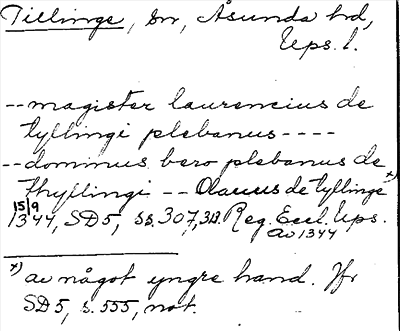 Tillinge, sn, Åsunda hd,
Ups. l.
--magister laurencius de
tyllingi plebanus----
--dominus bero plebanus de
thyllingi -- Olauus de tyllinge x)
15/9
1344, SD5, ss. 307, 313. Reg. Eccl. Ups.
av 1344
x) av något yngre hand. Jfr
SD5, s. 555, not.